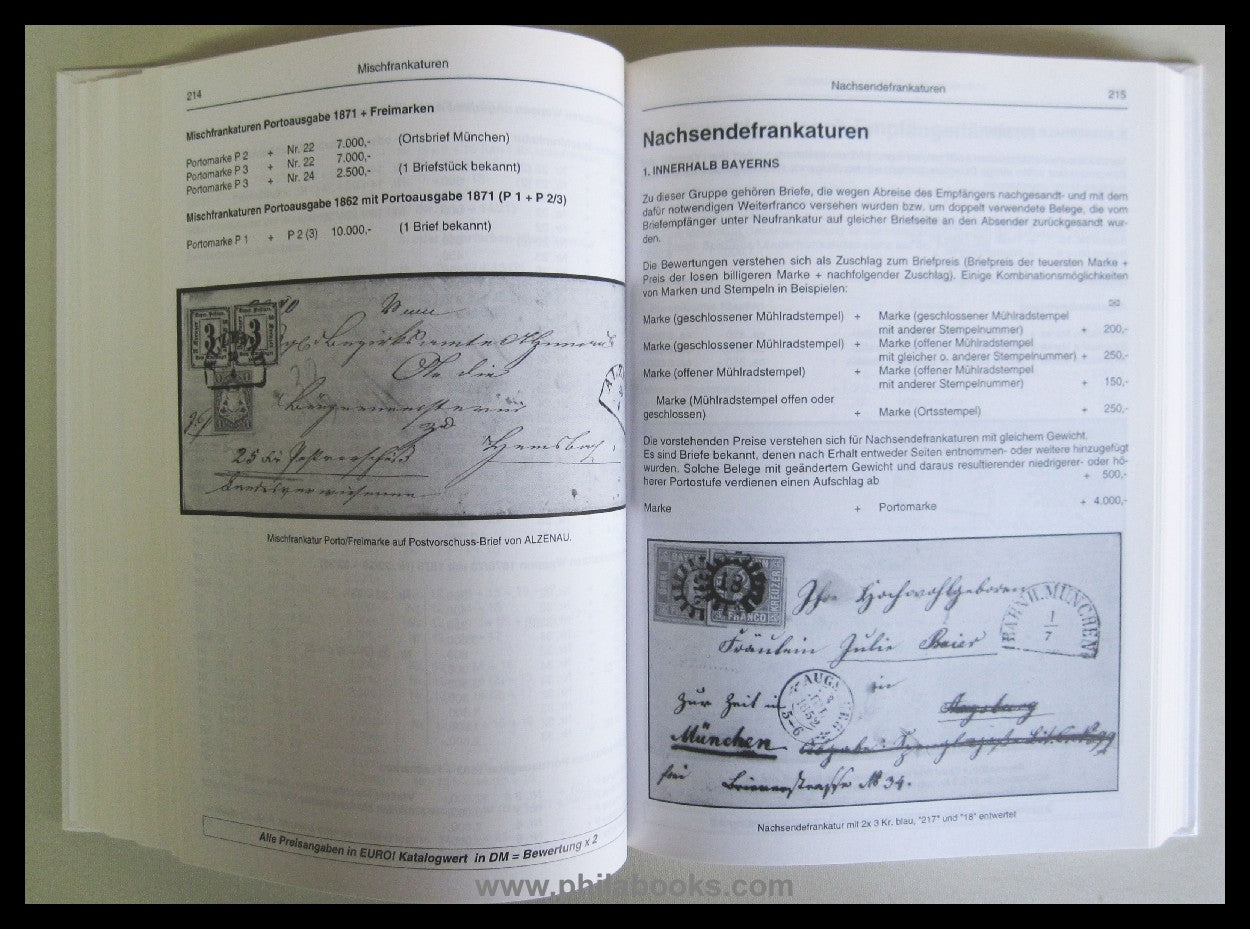 214
Mischfrankaturen
Mischfrankaturen Portoausgabe 1871 + Freimarken
Portomarke P 2 + Nr. 22 7.000,- (Ortsbrief München)
Portomarke P 3 + Nr. 22 7.000,-
Portomarke P 3 + Nr. 24 2.500,- (1 Briefstück bekannt)
Mischfrankaturen Portoausgabe 1862 mit Portoausgabe 1871 (P 1 + P 2/3)
Portomarke P 1 + P 2 (3) 10.000,- (1 Brief bekannt)
3 3
An die
Hemsbach
25
Mischfrankatur Porto/Freimarke auf Postvorschuss-Brief von ALZENAU.
Alle Preisangaben in EURO! Katalogwert in DM = Bewertung x 2
Nachsendefrankaturen
215
Nachsendefrankaturen
1. INNERHALB BAYERNS
Zu dieser Gruppe gehören Briefe, die wegen Abreise des Empfängers nachgesandt- und mit dem
dafür notwendigen Weiterfranco versehen wurden bzw. um doppelt verwendete Belege, die vom
Briefempfänger unter Neufrankatur auf gleicher Briefseite an den Absender zurückgesandt wur-
den.
Die Bewertungen verstehen sich als Zuschlag zum Briefpreis (Briefpreis der teuersten Marke +
Preis der losen billigeren Marke + nachfolgender Zuschlag). Einige Kombinationsmöglichkeiten
von Marken und Stempeln in Beispielen:
Marke (geschlossener Mühlradstempel) + Marke (geschlossener Mühlradstempel
mit anderer Stempelnummer) + 200,-
Marke (geschlossener Mühlradstempel) + Marke (offener Mühlradstempel
mit gleicher o. anderer Stempelnummer) + 250,-
Marke (offener Mühlradstempel) + Marke (offener Mühlradstempel
mit anderer Stempelnummer) + 150,-
Marke (Mühlradstempel offen oder
geschlossen) + Marke (Ortsstempel) + 250,-
Die vorstehenden Preise verstehen sich für Nachsendefrankaturen mit gleichem Gewicht.
Es sind Briefe bekannt, denen nach Erhalt entweder Seiten entnommen- oder weitere hinzugefügt
wurden. Solche Belege mit geändertem Gewicht und daraus resultierender niedrigerer- oder hö-
herer Portostufe verdienen einen Aufschlag ab + 500,-
Marke + Portomarke + 4.000,-
18
KREUZER
FRANCO
Ihro Hochwohlgeboren
BAHNH. MÜNCHEN
1
7
Fräulein Julie Baier
in
Augsburg
zur Zeit in
1852
5-6
München
frei Briennerstrasse No 34.
Nachsendefrankatur mit 2x 3 Kr. blau, "217" und "18" entwertet
www.philabooks.com